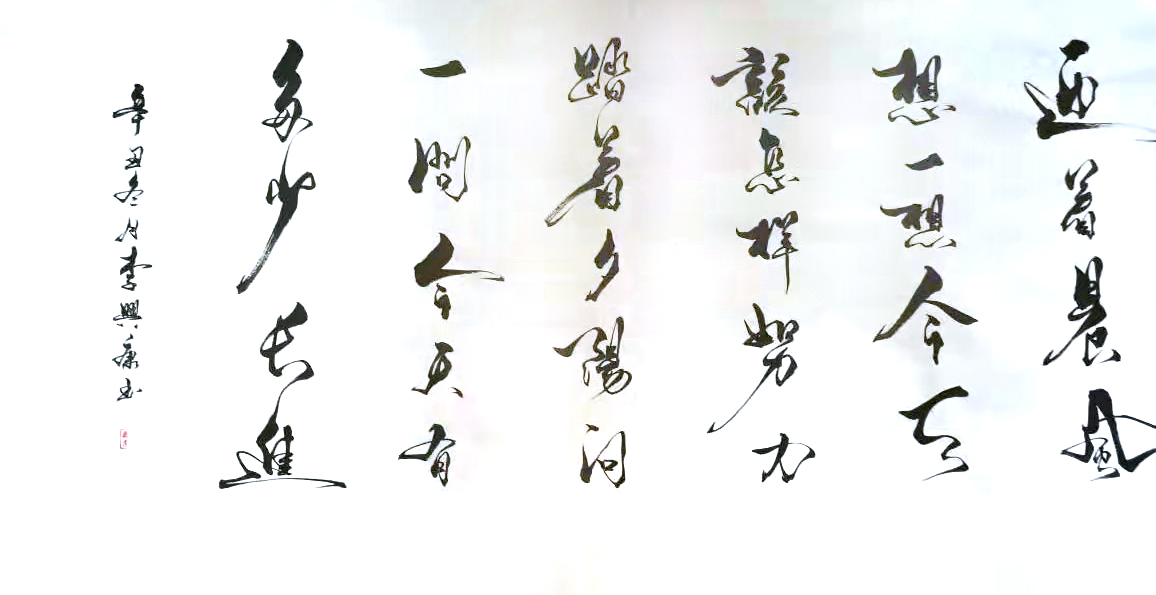 迎着晨風
想一想今天
該怎样努力
踏着夕陽问
一問今天有
多少长進
辛丑冬月李興康书